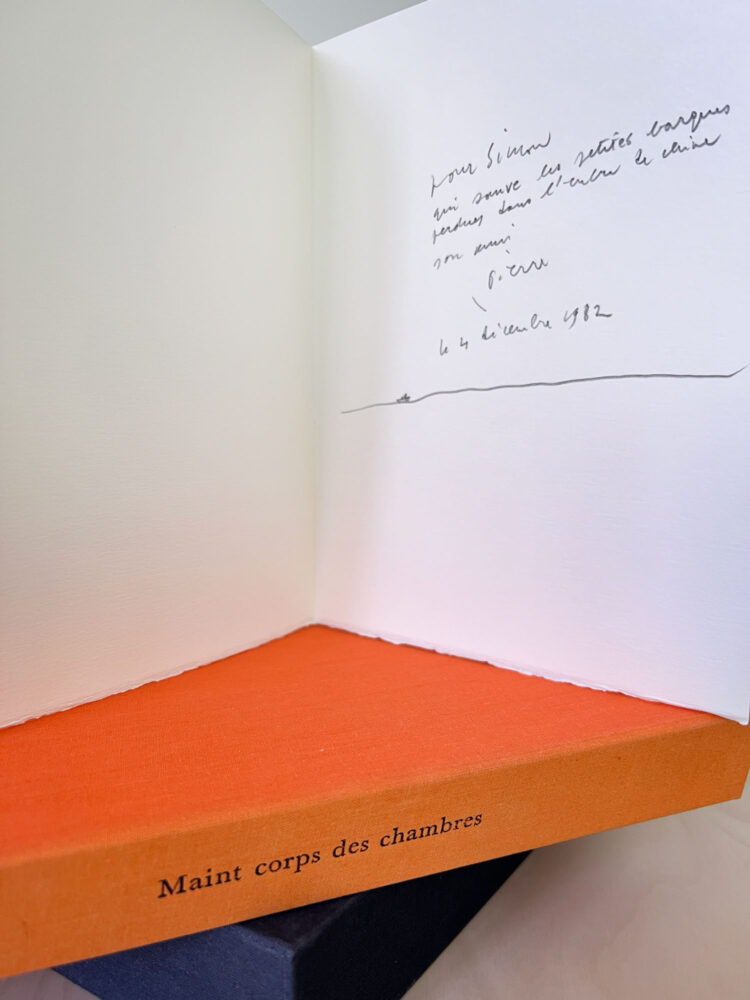 pour Simon
qui sauve les petites barques
perdues dans l'encre de chine
son ami
Pierre
le 4 décembre 1982
Maint corps des chambres